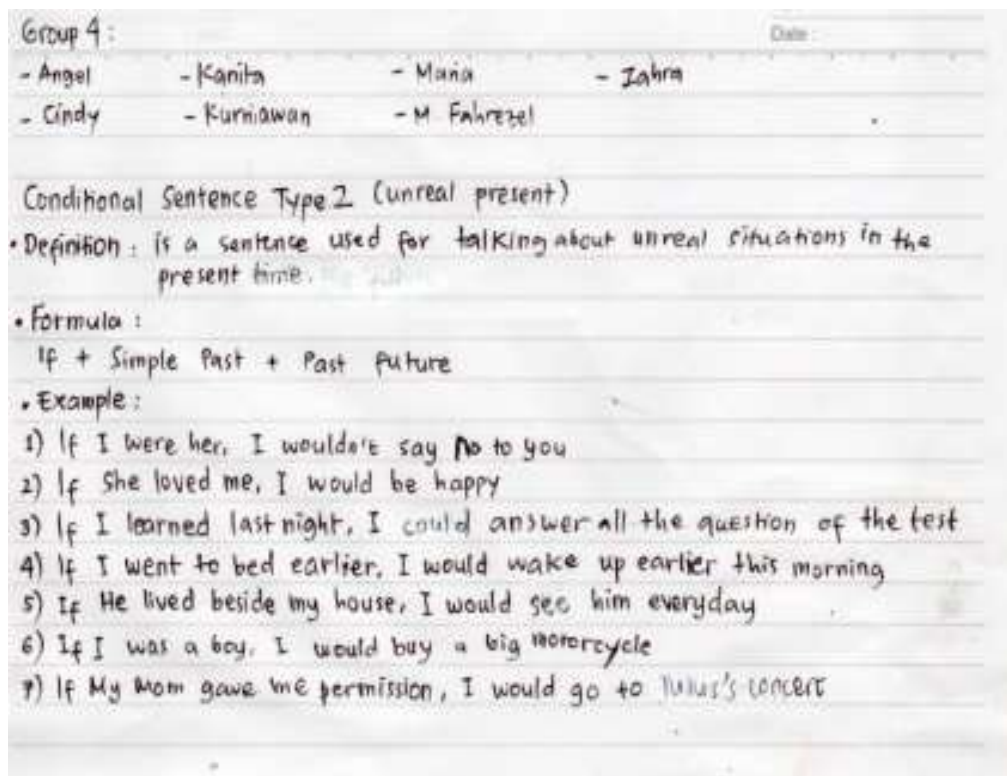 Group 4 :
Date :
- Angel - Kanita - Maria - Zahra
- Cindy - Kurniawan - M Fahrezel
Conditional Sentence Type 2 (unreal present)
• Definition : is a sentence used for talking about unreal situations in the
present time.
• Formula :
If + Simple Past + Past future
• Example :
1) If I were her, I wouldn't say no to you
2) If She loved me, I would be happy
3) If I learned last night, I could answer all the question of the test
4) If I went to bed earlier, I would wake up earlier this morning
5) If He lived beside my house, I would see him everyday
6) If I was a boy, I would buy a big motorcycle
7) If My Mom gave me permission, I would go to Tulus's concert